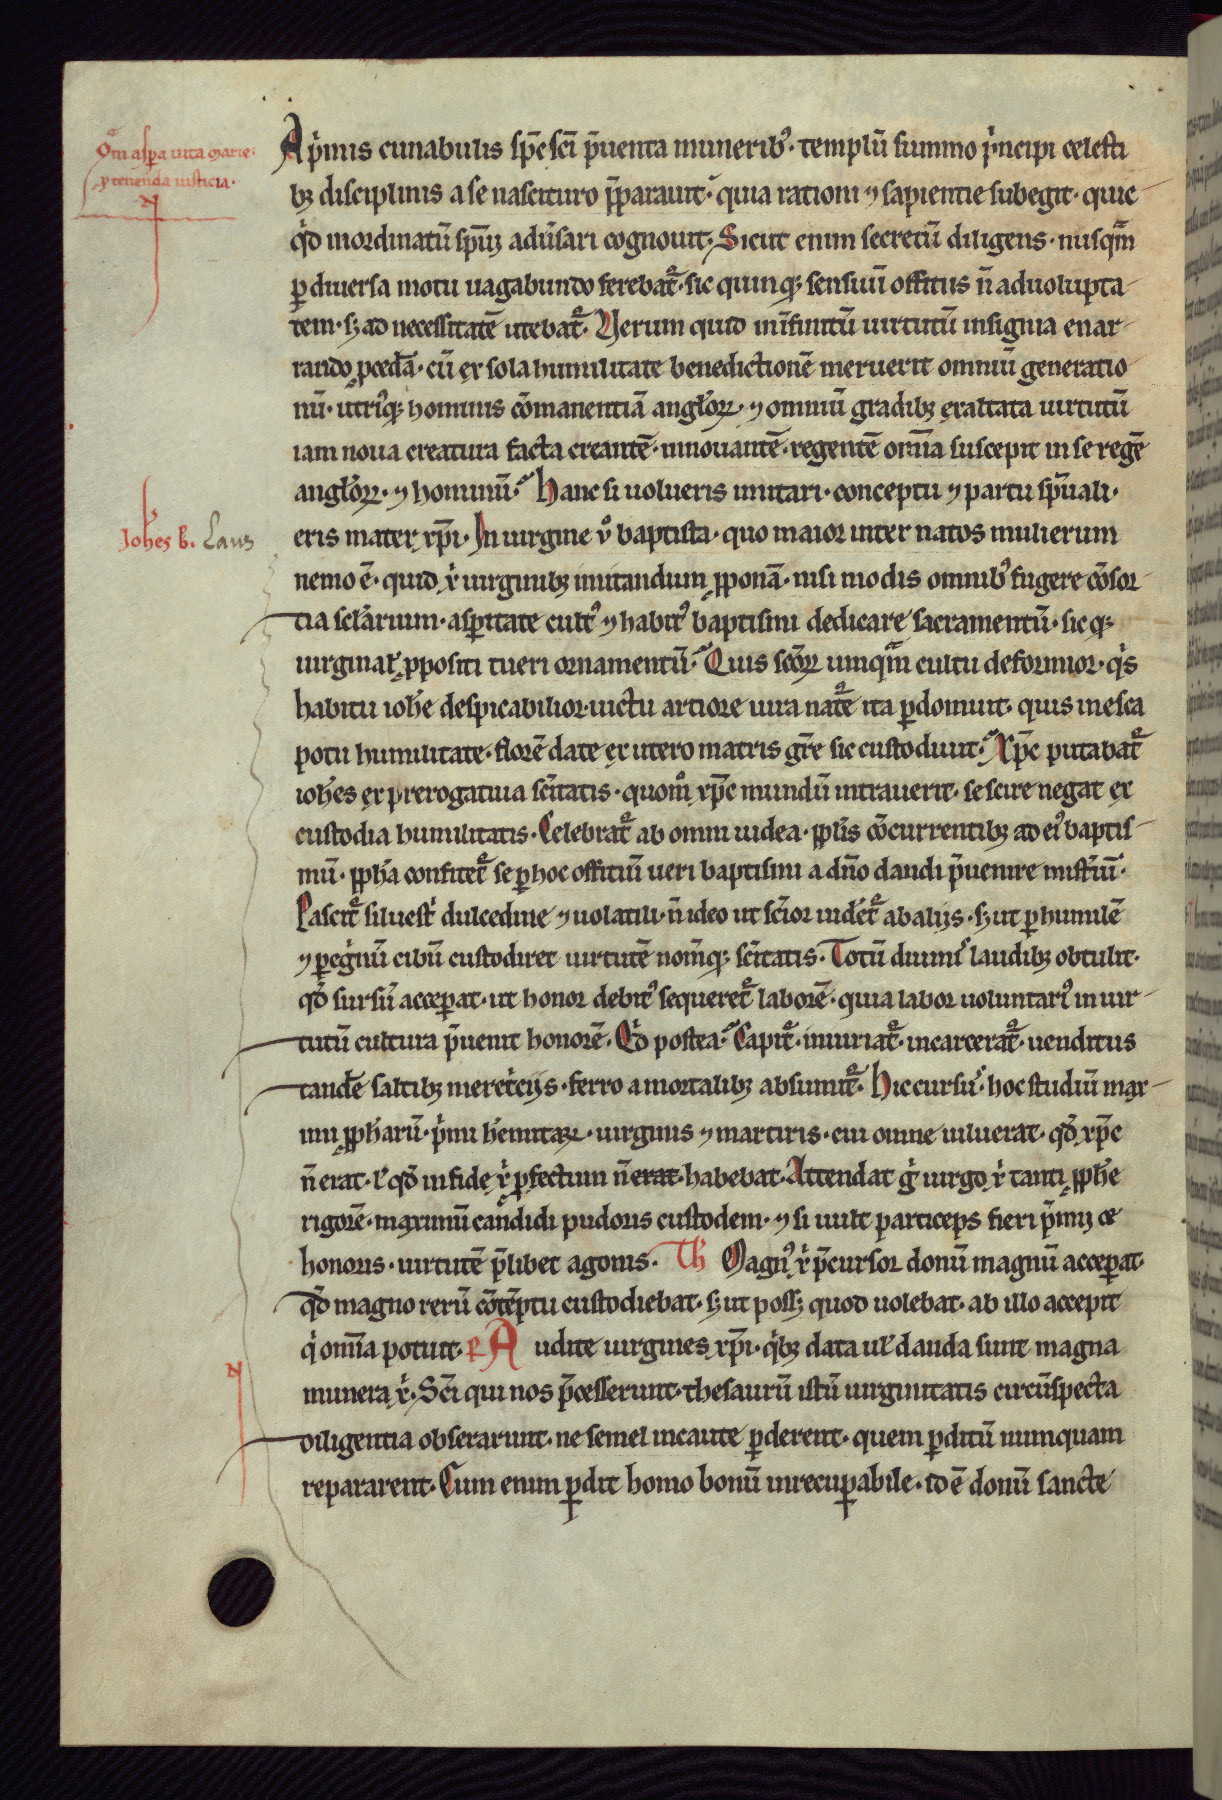 Qm̄ aspa uita marie.
⁊ tenenda iusticia.
A p̄mis cunabulis sp̄c sc̄i p̄uenta munerib᾽. templū summo p̍ncipi celesti
bꝫ disciplinis a se nascituro p̄parauit. quia rationi ⁊ sapientie subegit. quic
qd̍ inordinatū sp̄uꝫ adūsari cognouit. Sicut enim secretū diligens. nusqm̄
ꝑ diuersa motu uagabundo ferebat᷑. sic quinqꝫ sensuū offitiis n̄ ad uolupta
tem. sꝫ ad necessitatē utebat᷑. Verum quid infinitū uirtutū insignia enar
rando ꝓcedā. cū ex sola humilitate benedictionē meruerit omniū generatio
nū. utriqꝫ hominis cōmanentiā angl̄oꝝ. ⁊ omniū gradibꝫ exaltata uirtutū
iam noua creatura facta creantē. innouantē. regentē omīa suscepit in se regē
angl̄oꝝ. ⁊ hominū. Hanc si uolueris imitari. conceptu ⁊ partu sp̄uali.
Ioħes b. Laus
eris mater xp̄i. In uirgine ů baptista. quo maior inter natos mulierum
nemo ē. quid xp̍ uirginibꝫ imitandum ꝓponā. nisi modis omnib᾽ fugere cōsor
tia sc̄larium. asꝑitate cult᾽ ⁊ habit᾽ baptismi dedicare sacramentū. sicqꝫ
uirginal̄ ꝓpositi tueri ornamentū. Quis sc̄oꝝ umqm̄ cultu deformior. qi̍s
habitu ioħe despicabilior. uictu artiore uua nat᷑e ita ꝑdomuit. quis in esca
potu humilitate. florē date ex utero matris gr̄e sic custodiuit. Xp̄c putabat᷑
ioħes ex prerogatiua sc̄itatis. quom̊ xp̄c mundū intrauerit. se scire negat ex
custodia humilitatis. Celebrat᷑ ab omni iudea. ppl̄is cōcurrentibꝫ ad ei᾽ baptis
mū. ꝓpħa confitet᷑ se ꝑ hoc offitiū ueri baptismi a dn̄o dandi p̄uenire mist̄iū.
Pascit᷑ siluest̍ dulcedine ⁊ uolatili. n̄ ideo ut sc̄ior uidet᷑ ab aliis. sꝫ ut ꝑ humilē
⁊ ꝑegi̍nū cibū custodiret uirtutē nom̄qꝫ sc̄itatis. Totū diuinis laudibꝫ obtulit.
qd̄ sursū acceꝑat. ut honor debit᾽ sequeret᷑ laborē. quia labor uoluntari᾽ in uir
tutū cultura p̄uenit honorē. Qd̍ postea. Capit᷑. iniuriat᷑. incarcerat᷑. uenditus
tandē saltibꝫ meret̍ciis. ferro a mortalibꝫ absumit᷑. Hic cursus. hoc studiū max
imi ꝓpħarū. p̍mi ħemitaꝝ. uirginis ⁊ martiris. cui omne uiluerat. qd̄ xp̄c
n̄ erat. ł qd̄ in fide xp̍ ꝑfectum n̄ erat habebat. Attendat g̍ uirgo xp̍ tanti ꝓpħe
rigorē. maximū candidi pudoris custodem. ⁊ si uult particeps fieri p̄mij ce
honoris. uirtutē p̄libet agonis. Tħ Magn᾽ xp̍ p̄cursor donū magnū acceꝑat.
qd̄ magno rerū cōtēptu custodiebat. sꝫ ut possꝫ quod uolebat. ab illo accepit
qi̍ omīa potuit. P Audite uirgines xp̄i. qi̍bꝫ data uł danda sunt magna
munera xp̍. Sc̄i qui nos p̄cesserunt. thesaurū istū uirginitatis circūspecta
diligentia obserarunt. ne semel incaute ꝑderent. quem ꝑditū numquam
repararent. Cum enim ꝑdit homo bonū inrecuꝑabile. id ē donū sancte